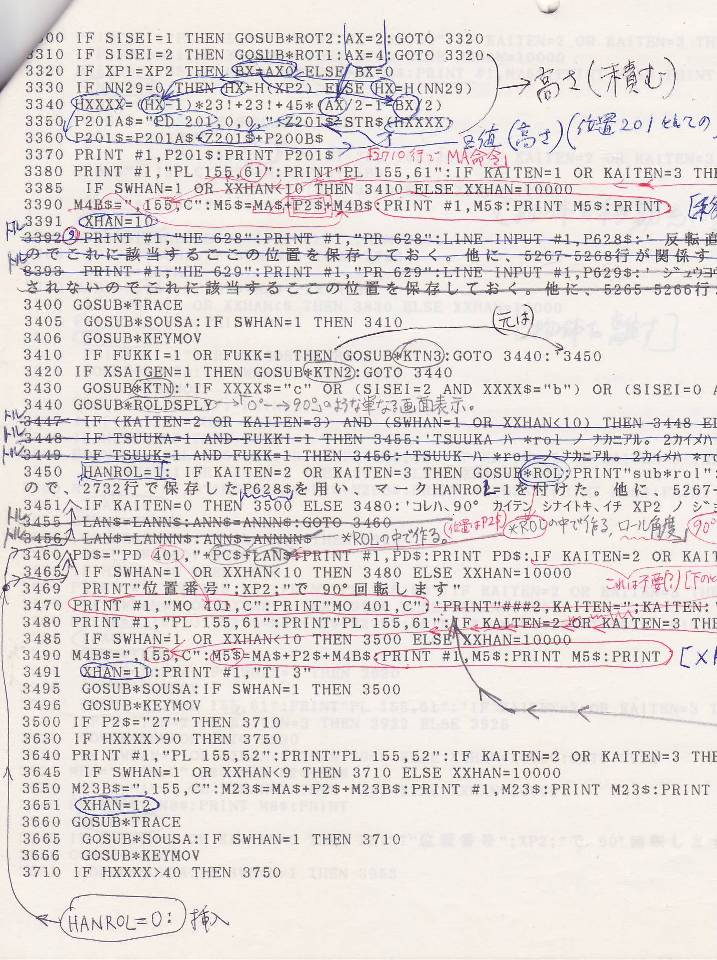 00 IF SISEI=1 THEN GOSUB*ROT2:AX=2:GOTO 3320
3310 IF SISEI=2 THEN GOSUB*ROT1:AX=4:GOTO 3320
3320 IF XP1=XP2 THEN BX=AX0 ELSE BX=0
3330 IF NN29=0 THEN HX=H(XP2) ELSE HX=H(NN29)
→高さ(積む)
3340 HXXXX=(HX-1)*23!+23!+45*(AX/2-1*BX/2)
3350 P201A$="PD 201,0,0,":Z201$=STR$(HXXXX)
Z値(高さ)(位置201としての
3360 P201$=P201A$+Z201$+P200B$
3370 PRINT #1,P201$:PRINT P201$
2710行でMA命令」
3380 PRINT #1,"PL 155,61":PRINT"PL 155,61":IF KAITEN=1 OR KAITEN=3 THE
3385 IF SWHAN=1 OR XXHAN<10 THEN 3410 ELSE XXHAN=10000
3390 M4B$=",155,C":M5$=MA$+P2$+M4B$:PRINT #1,M5$:PRINT M5$:PRINT
3391 XHAN=10
トル 3392 PRINT #1,"HE 628":PRINT #1,"PR 628":LINE INPUT #1,P628$:' 反転直
のでこれに該当するここの位置を保存しておく。他に、5267-5268行が関係す
トル 8393 PRINT #1,"HE 629":PRINT #1,"PR 629":LINE INPUT #1,P629$:' ジュウヨ
されないのでこれに該当するここの位置を保存しておく。他に、5265-5266行
3400 GOSUB*TRACE
3405 GOSUB*SOUSA:IF SWHAN=1 THEN 3410
(元は)
3406 GOSUB*KEYMOV
3410 IF FUKKI=1 OR FUKK=1 THEN GOSUB*KTN3:GOTO 3440:'*3450
3420 IF XSAIGEN=1 THEN GOSUB*KTN2:GOTO 3440
3430 GOSUB*KTN:'IF XXXX$="c" OR (SISEI=2 AND XXXX$="b") OR (SISEI=0 A
3440 GOSUB*ROLDSPLY→「0°→90°」のような単なる画面表示。
トル 3447 IF (KAITEN=2 OR KAITEN=3) AND (SWHAN=1 OR XXHAN<10) THEN 3448 EL
トル 3448 IF TSUUKA=1 AND FUKKI=1 THEN 3455:'TSUUKA ハ *rol ノ ナカニアル。2カイメハ
トル 3449 IF TSUUK=1 AND FUKK=1 THEN 3456:'TSUUK ハ *rol ノ ナカニアル。2カイメハ
3450 HANROL=1: IF KAITEN=2 OR KAITEN=3 THEN GOSUB*ROL:PRINT"sub*rol":
ので、2732行で保存したP628$を用い、マークHANROL=1を付けた。他に、5267-
3451 IF KAITEN=0 THEN 3500 ELSE 3480:'コレハ、90° カイテン シナイトキ、イチ XP2 ノ ジ
トル 3455 LAN$=LANN$:ANN$=ANNN$:GOTO 3460
(位置はP2$) *ROLの中で作る,ロール角度 (90°
トル 3456 LAN$=LANNN$:ANN$=ANNNN$ *ROLの中で作る。
3460 PD$="PD 401,"+PC$+LAN$:PRINT #1,PD$:PRINT PD$:IF KAITEN=2 OR KAIT
3465 IF SWHAN=1 OR XXHAN<10 THEN 3480 ELSE XXHAN=10000
これは不要(?)
3469 PRINT"位置番号";XP2;"で 90°回転します"
3470 PRINT #1,"MO 401,C":PRINT"MO 401,C":'PRINT"###2,KAITEN=";KAITEN:
3480 PRINT #1,"PL 155,61":PRINT"PL 155,61":IF KAITEN=2 OR KAITEN=3 THE
3485 IF SWHAN=1 OR XXHAN<10 THEN 3500 ELSE XXHAN=10000
3490 M4B$=",155,C":M5$=MA$+P2$+M4B$:PRINT #1,M5$:PRINT M5$:PRINT
3491 XHAN=11:PRINT #1,"TI 3"
3495 GOSUB*SOUSA:IF SWHAN=1 THEN 3500
3496 GOSUB*KEYMOV
3500 IF P2$="27" THEN 3710
3630 IF HXXXX>90 THEN 3750
3640 PRINT #1,"PL 155,52":PRINT"PL 155,52":IF KAITEN=2 OR KAITEN=3 THE
3645 IF SWHAN=1 OR XXHAN<9 THEN 3710 ELSE XXHAN=10000
3650 M23B$=",155,C":M23$=MA$+P2$+M23B$:PRINT #1,M23$:PRINT M23$:PRINT
3651 XHAN=12
3660 GOSUB*TRACE
3665 GOSUB*SOUSA:IF SWHAN=1 THEN 3710
3666 GOSUB*KEYMOV
3710 IF HXXXX>40 THEN 3750
HANROL=0: 挿入